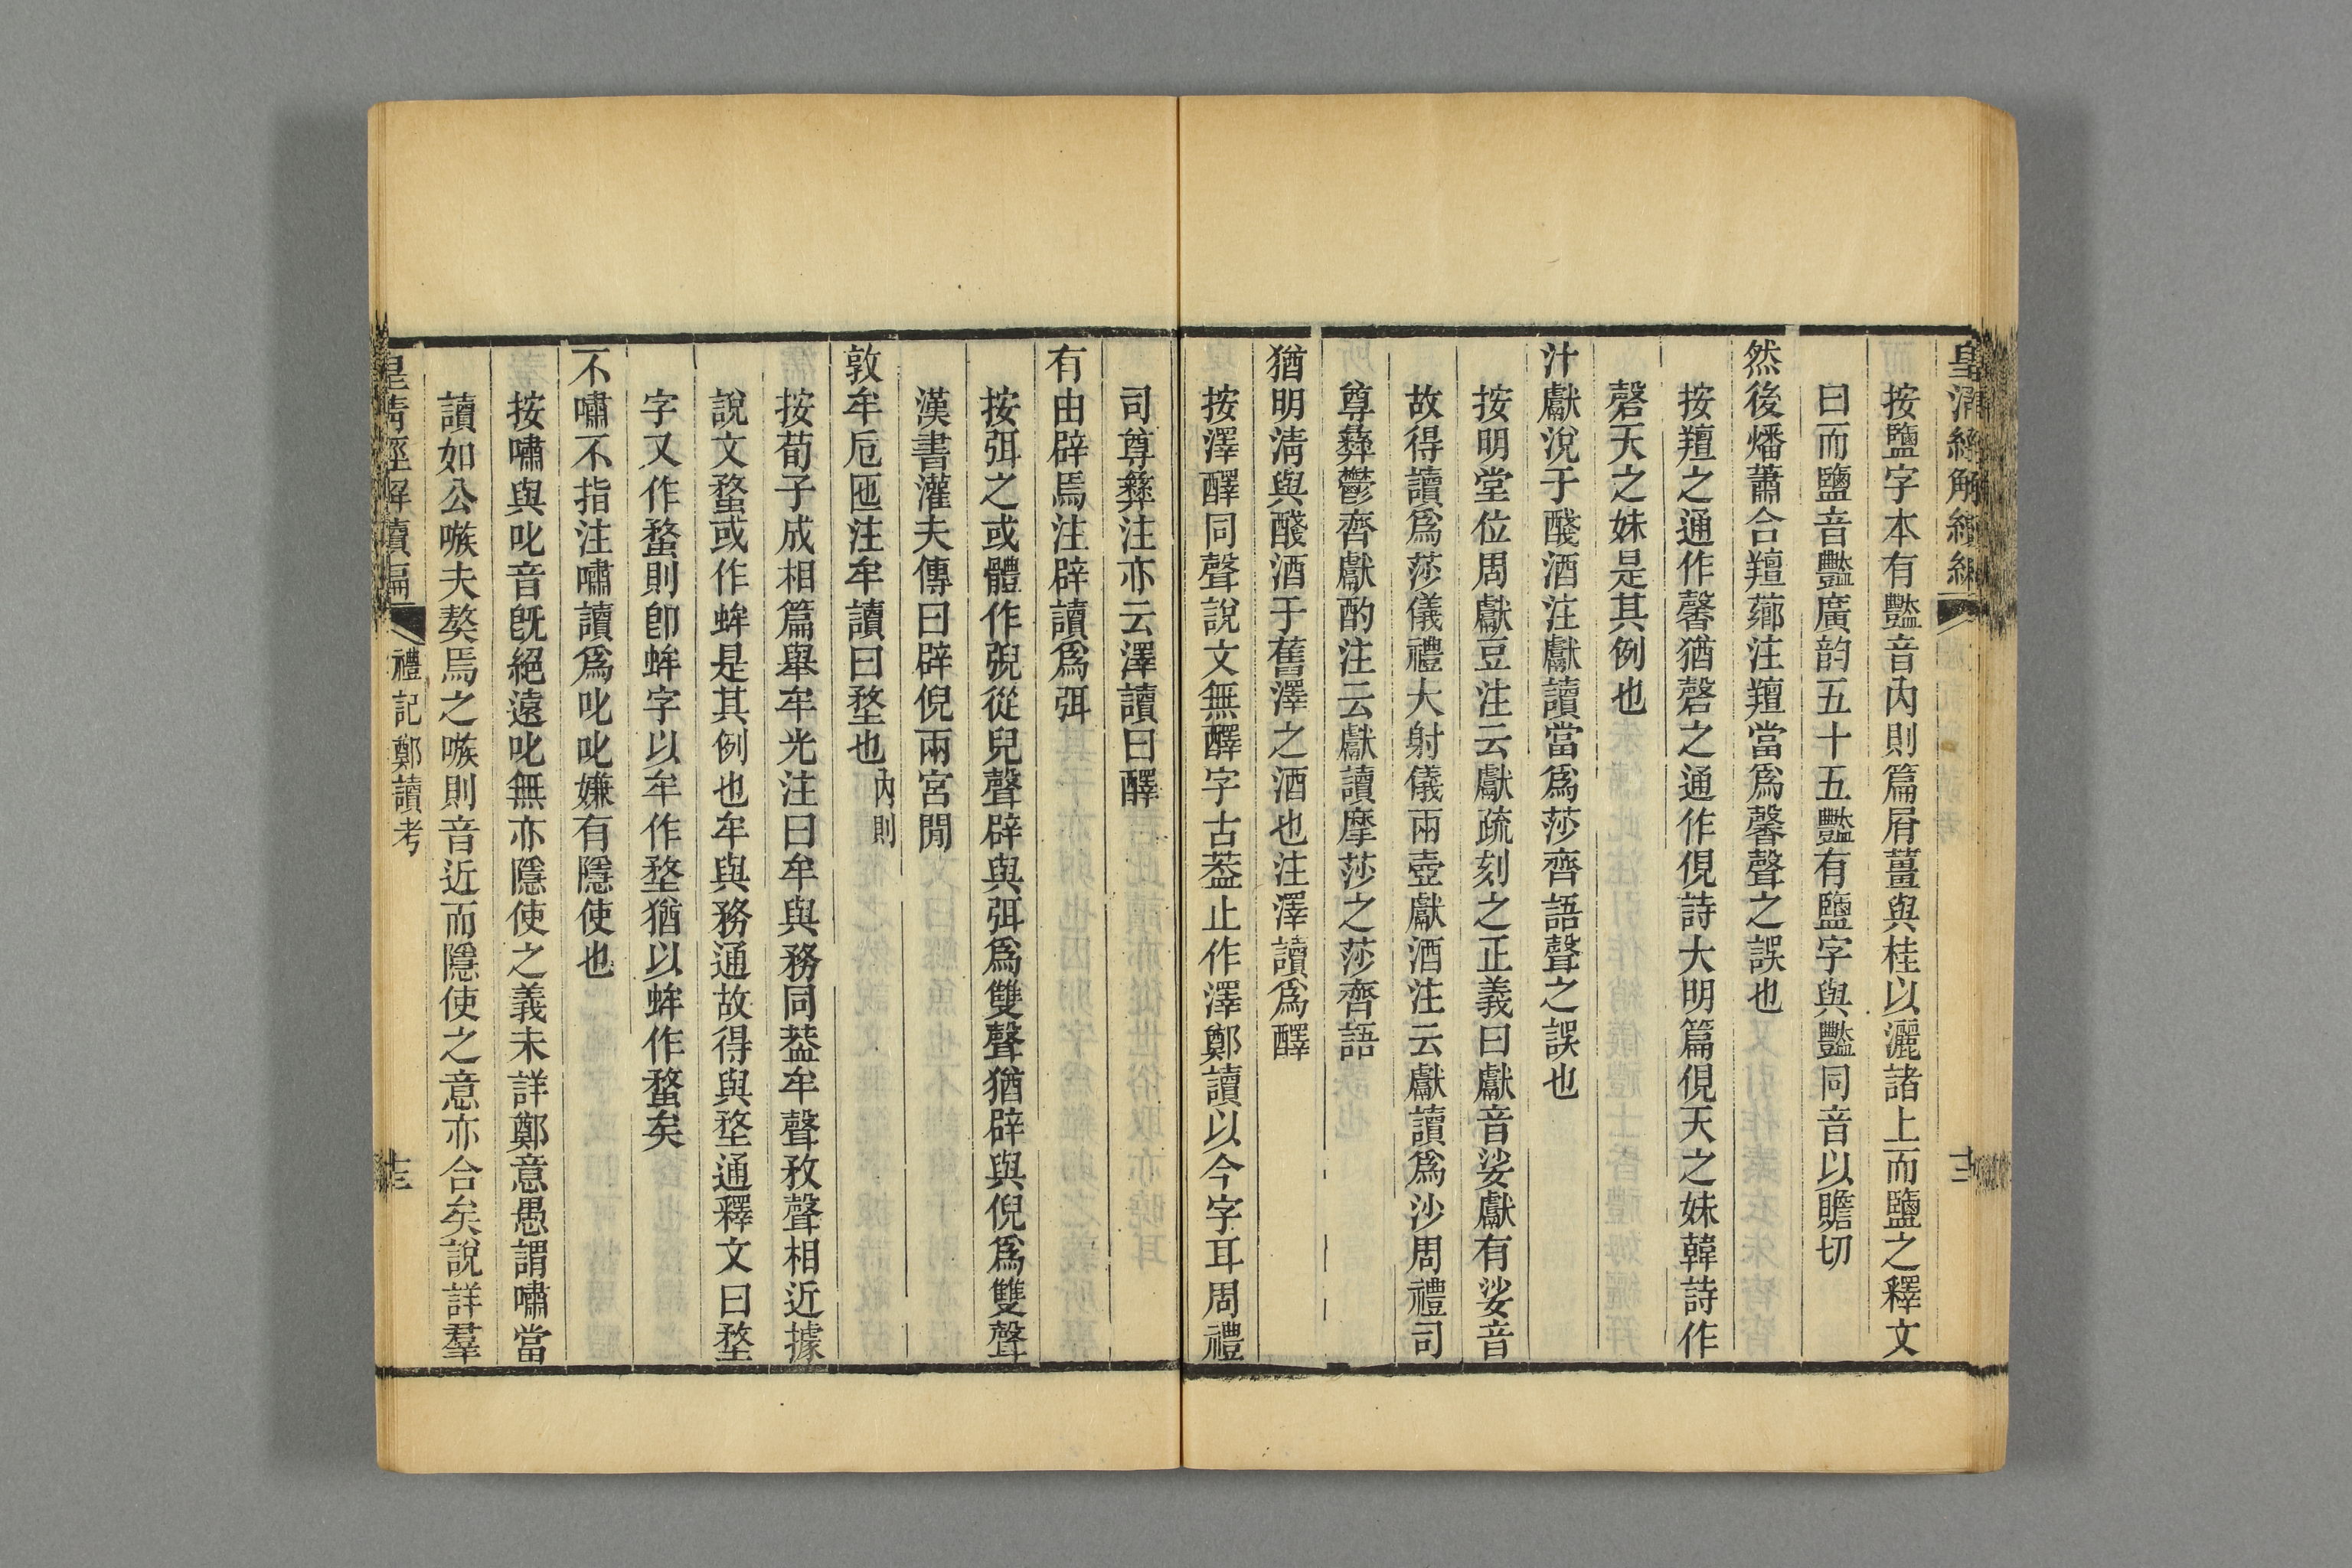 按鹽字本有豔音內則篇屑薑與桂以灑諸上而鹽之釋文
曰而鹽音豔廣韵五十五豔有鹽字與豔同音以贍切
然後燔蕭合羶薌注羶當爲馨聲之誤也
按羶之通作馨猶磬之通作俔詩大明篇俔天之妹韓詩作
磬天之妹是其例也
汁獻涗于醆酒注獻讀當爲莎齊語聲之誤也
按明堂位周獻豆注云獻疏刻之正義曰獻音娑獻有娑音
故得讀爲莎儀禮大射儀兩壺獻酒注云獻讀爲沙周禮司
尊彝鬱齊獻酌注云獻讀摩莎之莎齊語
猶明淸與醆酒于舊澤之酒也注澤讀爲醳
按澤醳同聲說文無醳字古葢止作澤鄭讀以今字耳周禮
司尊彝注亦云澤讀曰醳
有由辟焉注辟讀爲弭
按弭之或體作㢽從兒聲辟與弭爲雙聲猶辟與倪爲雙聲
漢書灌夫傳曰辟倪兩宮閒
敦牟卮匜注牟讀曰堥也 內則
按荀子成相篇舉牟光注曰牟與務同葢牟聲敄聲相近據
說文蝥或作蛑是其例也牟與務通故得與堥通釋文曰堥
字又作蝥則卽蛑字以牟作堥猶以蛑作蝥矣
不嘯不指注嘯讀爲叱叱嫌有隱使也
按嘯與叱音旣絕遠叱無亦隱使之義未詳鄭意愚謂嘯當
讀如公嗾夫獒焉之嗾則音近而隱使之意亦合矣說詳羣
皇淸經解續編 禮記鄭讀考 十三